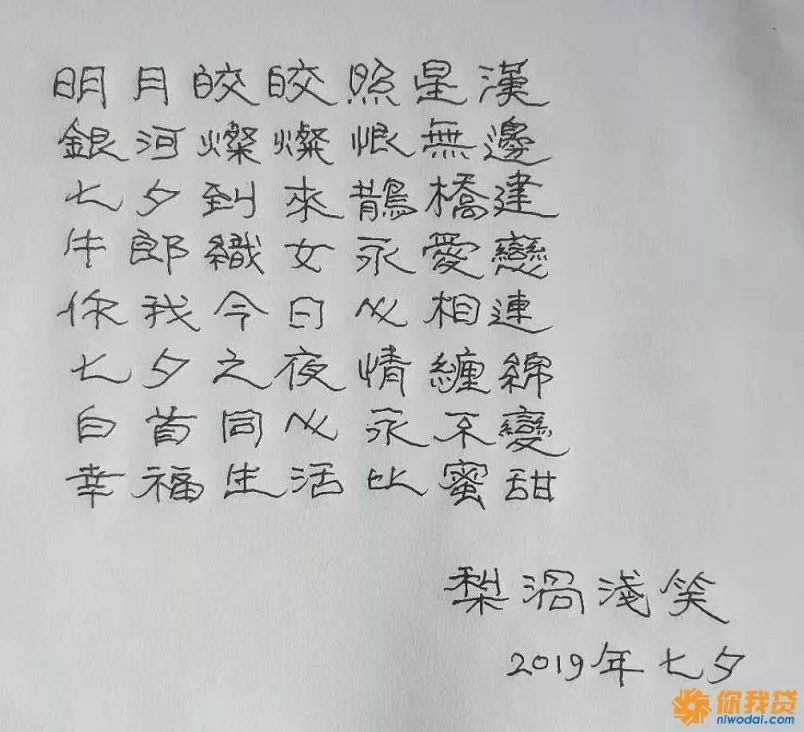 明月皎皎照星漢
銀河燦燦恨無邊
七夕到來鵲橋建
牛郎織女永愛戀
你我今日心相連
七夕之夜情纏綿
白首同心永不變
幸福生活比蜜甜
梨渦淺笑
2019年七夕
你我贷
niwodai.com